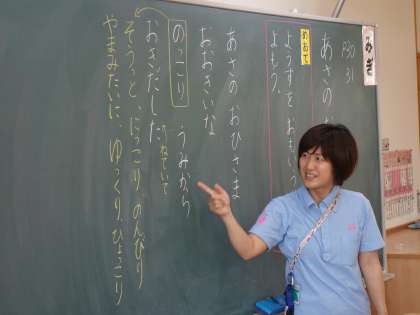 P30
31
あさの お
めあて
ようすを おもいう
よもう。
あさの おひさま
おおきいな
のっこり うみから
おきだした
そうっと、にっこり のんびり
やまみたいに、ゆっくり、ひょっこり